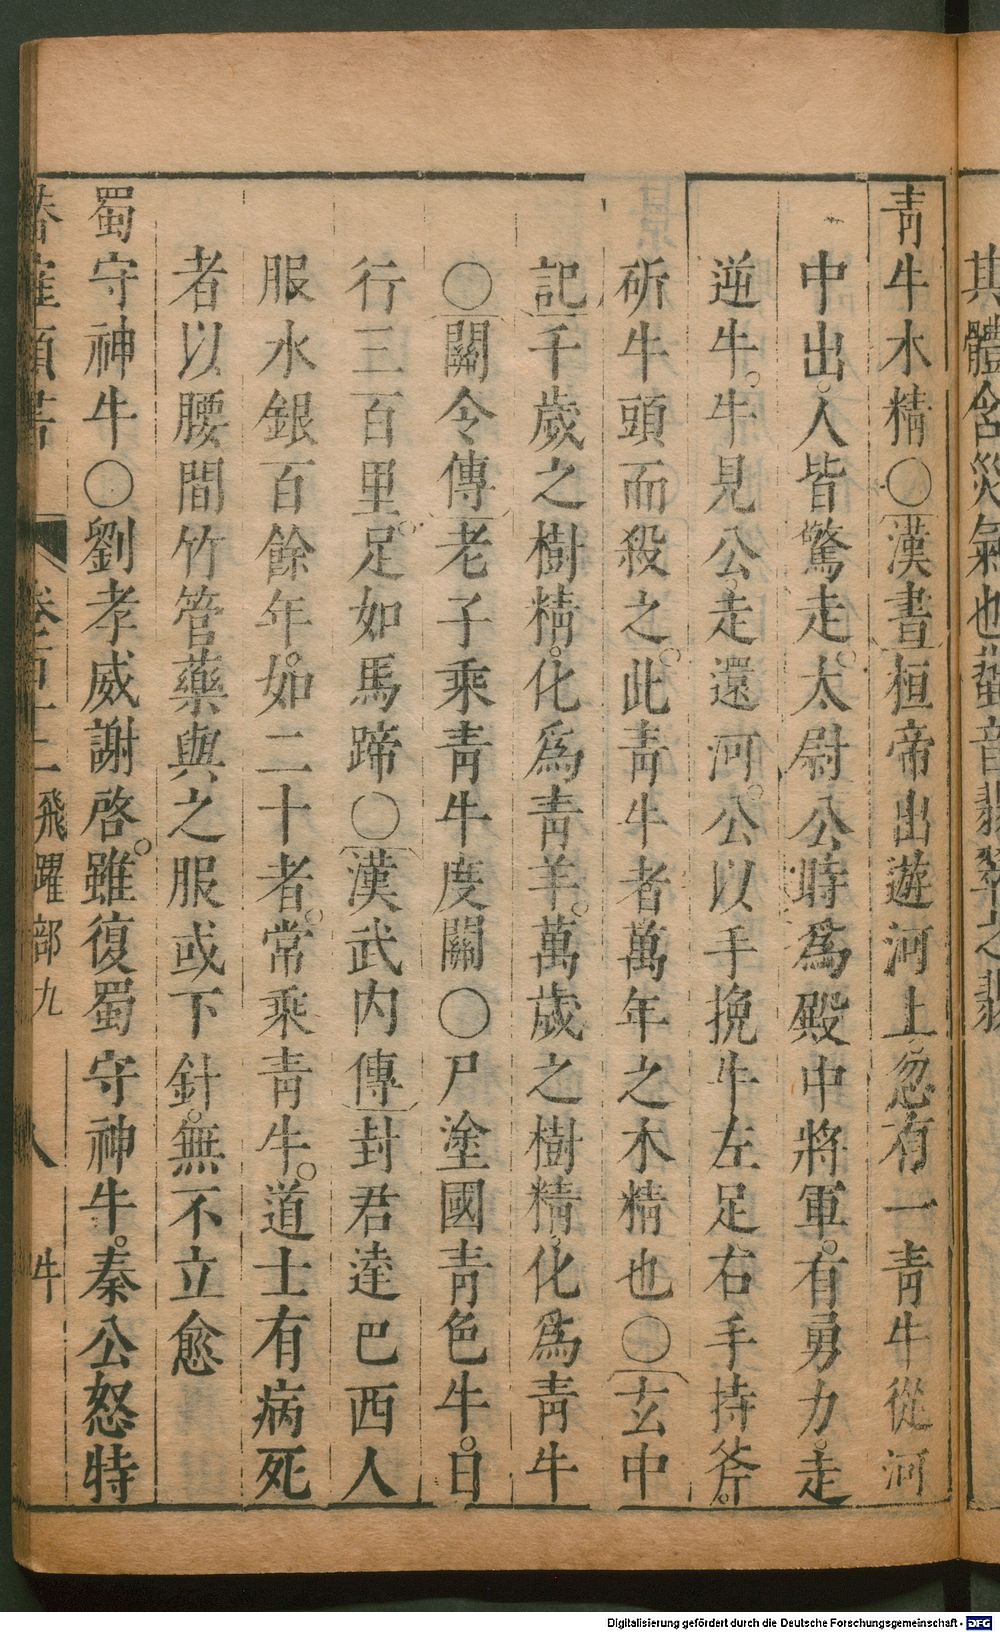 其體含災氣也蜚音翡翠之翡
青牛木精○漢書桓帝出遊河上忽有一青牛從河
中出。人皆驚走。太尉公時爲殿中將軍。有勇力。走
逆牛。牛見公。走還河。公以手挽牛左足右手持斧。
斫牛頭而殺之。此青牛者萬年之木精也○玄中
記千歲之樹精。化爲青羊。萬歲之樹精。化爲青牛
○關令傳老子乘青牛度關○尸塗國青色牛。日
行三百里。足如馬蹄○漢武內傳封君逹巴西人
服水銀百餘年。如二十者。常乘青牛。道士有病死
者以腰間竹管藥與之服或下針。無不立愈
蜀守神牛○劉孝威謝啓。雖復蜀守神牛。秦公怒特
飛躍部九 牛
Digitalisierung gefördert durch die Deutsche Forschungsgemeinschaft - DFG